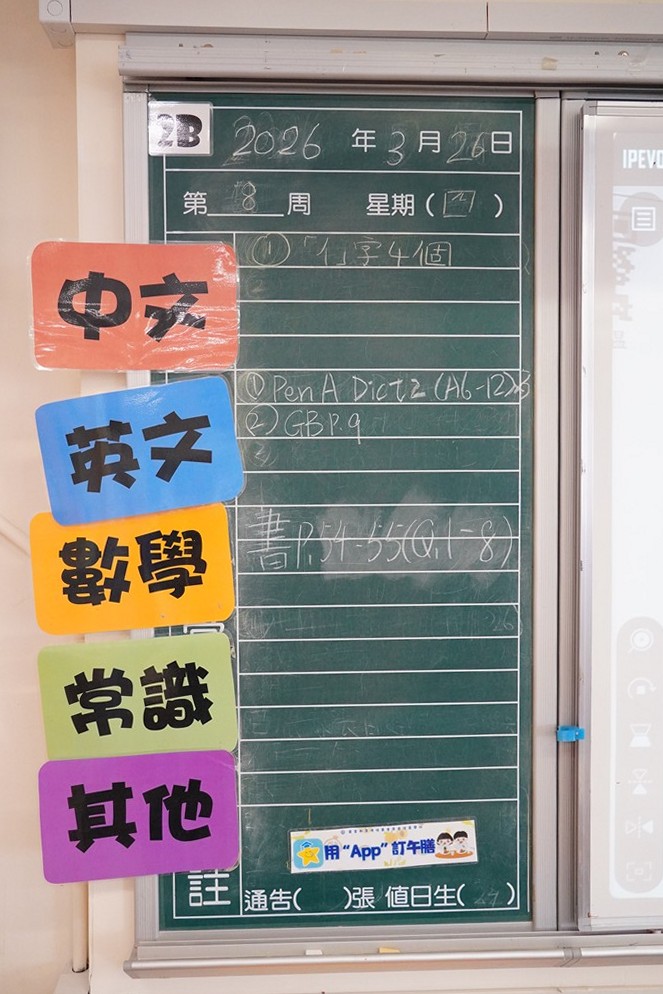 2B
2026 年 3 月 26 日
第 8 周 星期( 四 )
中文
① 「行」字4個
英文
① Pen A Dict 2 (A6-12)
② GB P.9
數學
書P.54-55(Q.1-8)
常識
其他
用“App”訂午膳
註
通告( )張 值日生( )
IPEVO